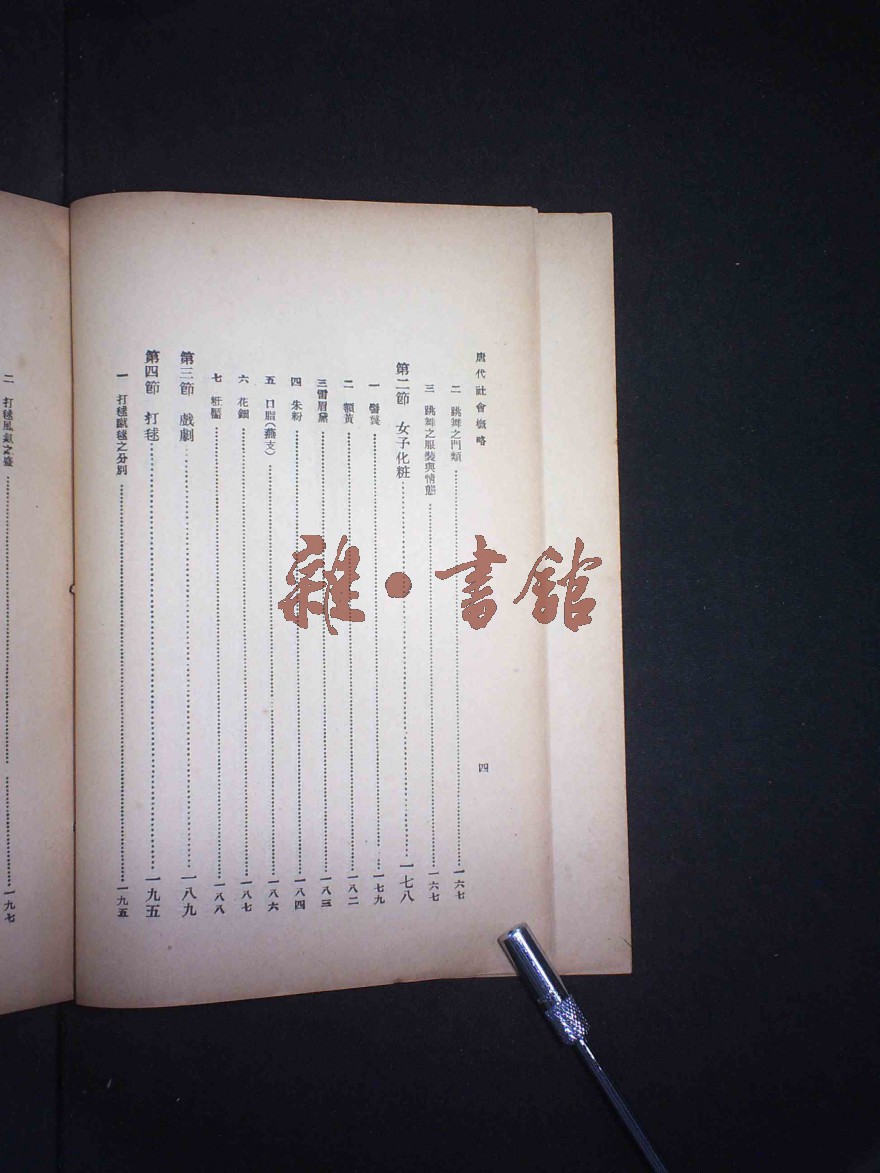 唐代社會槪略
四
二 跳舞之門類 一六七
三 跳舞之服裝與情態 一六七
第二節 女子化粧 一七八
一 髻鬟 一七九
二 額黃 一八二
三 眉黛 一八三
四 朱粉 一八四
五 口脂(燕支) 一八六
六 花鈿 一八七
七 粧靨 一八八
第三節 戲劇 一八九
第四節 打毬 一九五
一 打毬蹴毬之分別 一九五
二 打毬風氣之盛 一九七
雜·書館